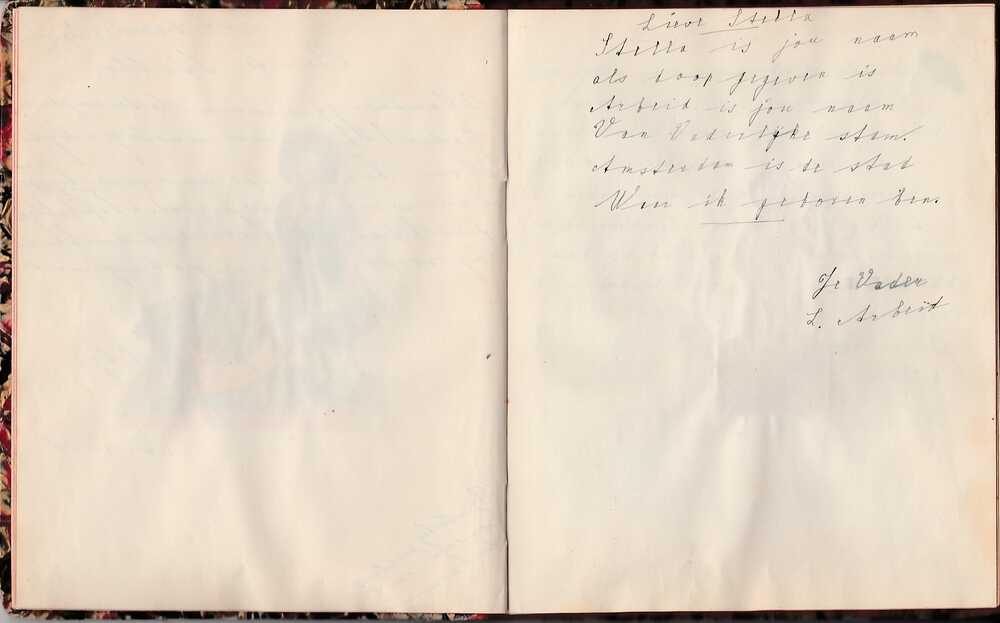 Lieve Stella
Stella is jou naam
als doop gegeven is
Arbeid is jou naam
Van Vaderlijke stam.
Amsterdam is de stad
Waar ik geboren ben.
Je Vader
L. Arbeid